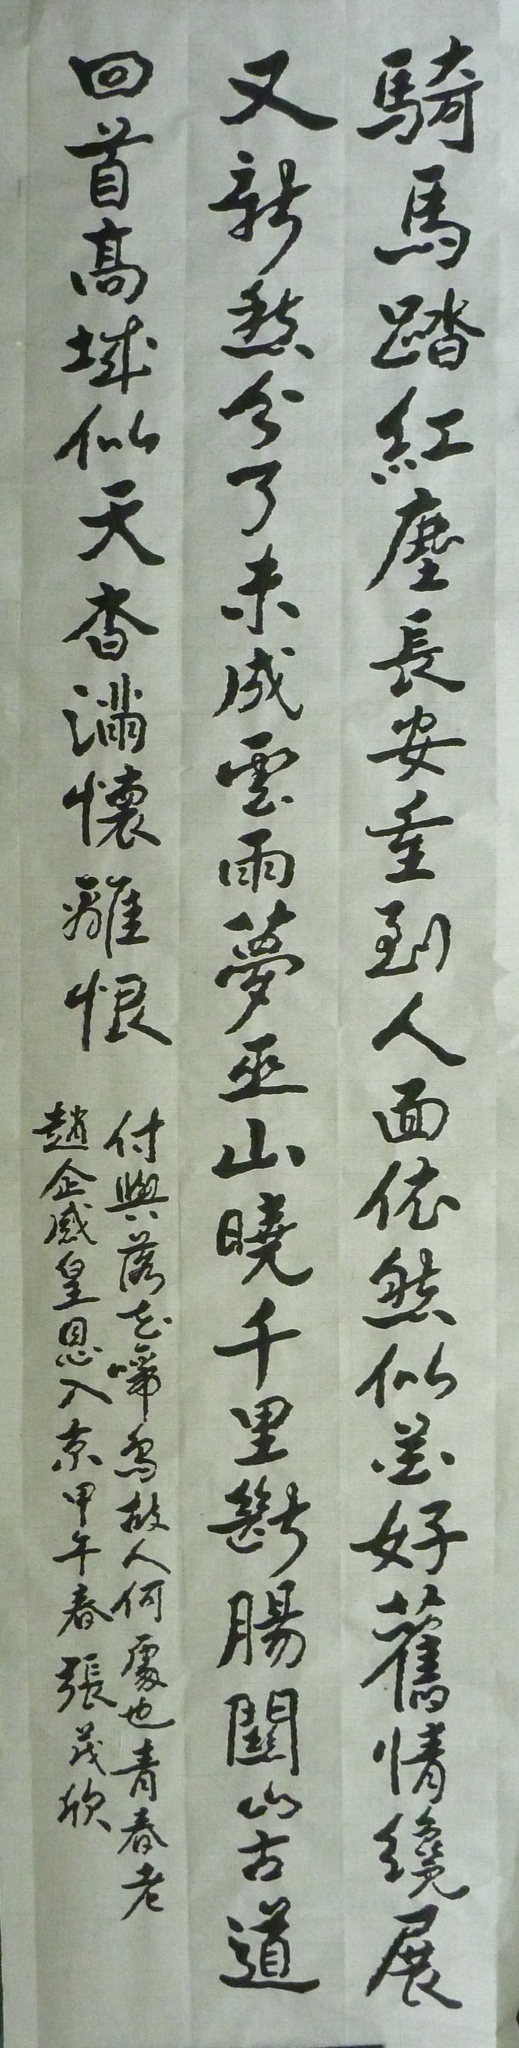 騎馬踏紅塵長安重到人面依然似花好舊情纔展
又新愁分了未成雲雨夢巫山曉千里斷腸關山古道
回首高城似天杳滿懷離恨
付與落花啼鳥故人何處也青春老
趙企感皇恩入京甲午春張茂欣